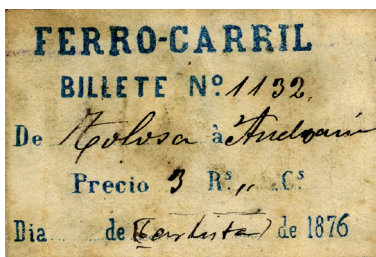 FERRO-CARRIL
BILLETE Nº 1132
De Tolosa à Andoain
Precio 3 Rˢ „ Cˢ
Dia de (Carlista) de 1876